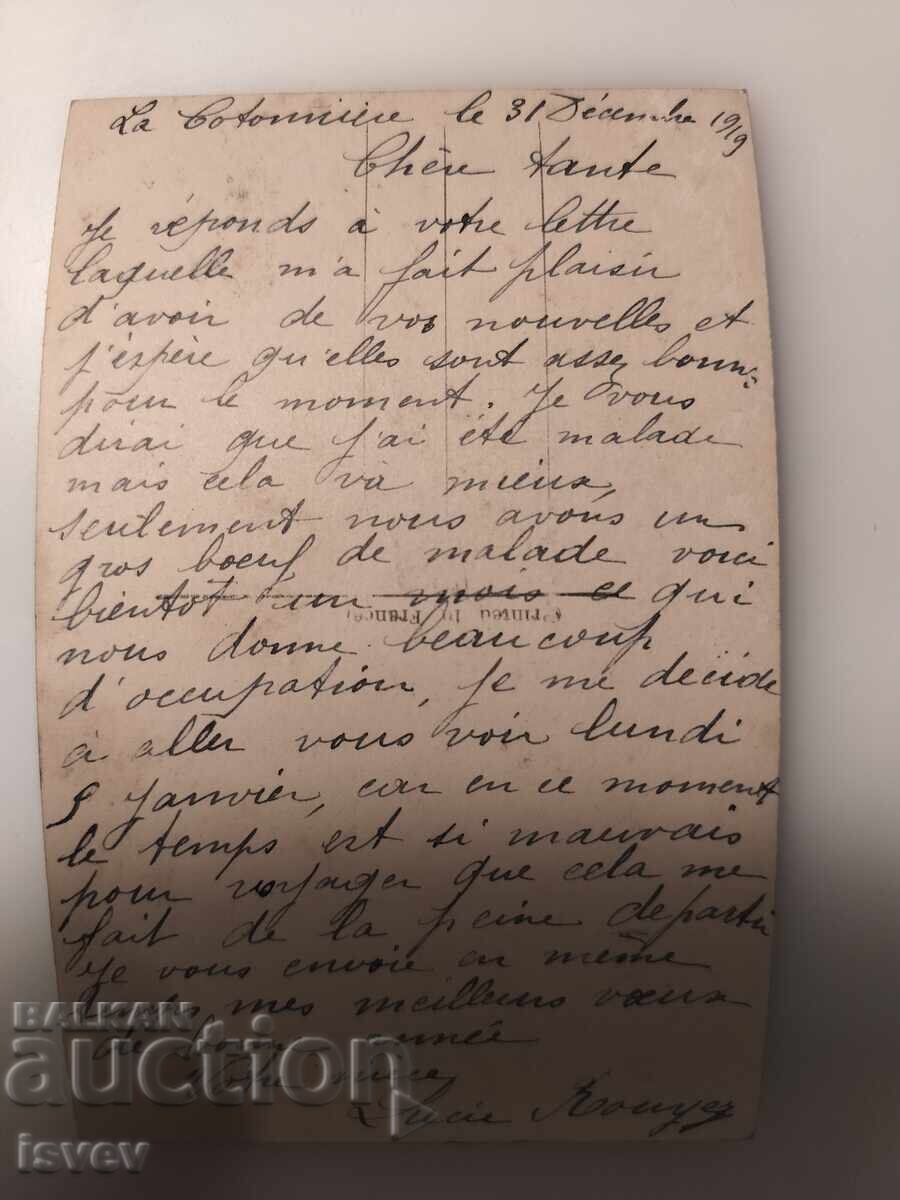 La Cotonnière le 31 Décembre 1919
Chère tante
Je réponds à votre lettre
laquelle m'a fait plaisir
d'avoir de vos nouvelles et
j'espère qu'elles sont assez bonn
pour le moment. Je vous
dirai que j'ai été malade
mais cela va mieux,
seulement nous avons un
gros boeuf de malade voici
bientôt un mois ce qui
(Printed in France)
nous donne beaucoup
d'occupation, je me décide
à aller vous voir lundi
5 Janvier, car en ce moment
le temps est si mauvais
pour voyager que cela me
fait de la peine de partir
Je vous envoie en même
temps mes meilleurs voeux
de bonne année
Votre nièce
Lucie
BALKAN
auction
isvev